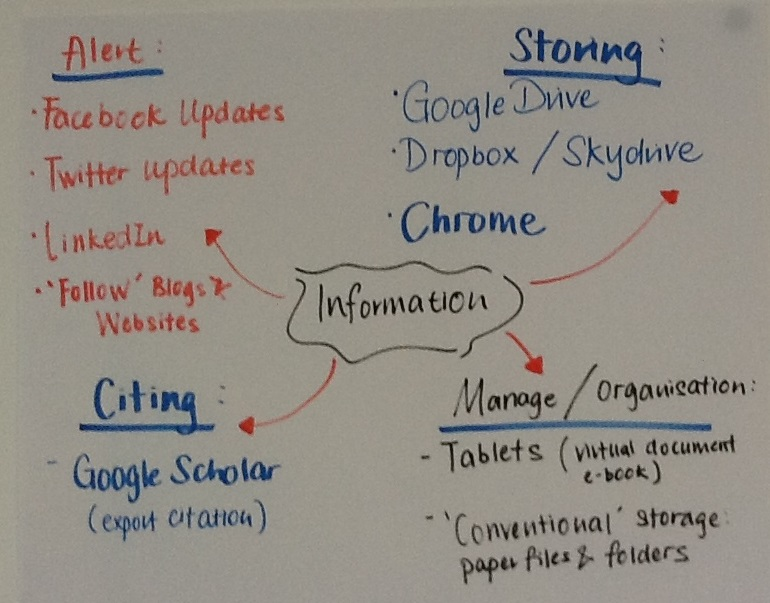 Alert:
· Facebook Updates
· Twitter updates
· LinkedIn
· 'Follow' Blogs &
Websites
Storing:
· Google Drive
· Dropbox / Skydrive
· Chrome
Information
Citing:
- Google Scholar
(export citation)
Manage / Organisation:
- Tablets (virtual document
e-book)
- 'Conventional' storage:
paper files & folders